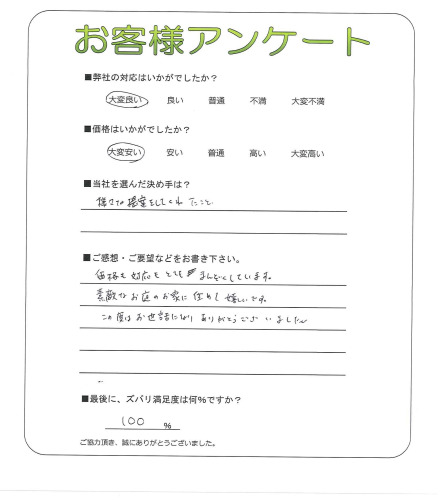 お客様アンケート
■弊社の対応はいかがでしたか？
大変良い 良い 普通 不満 大変不満
■価格はいかがでしたか？
大変安い 安い 普通 高い 大変高い
■当社を選んだ決め手は？
提案をしてくれたこと
■ご感想・ご要望などをお書き下さい。
価格も対応もとても まんぞくしています。
素敵なお庭のお家に住めて嬉しいです。
この度はお世話になりありがとうございました
■最後に、ズバリ満足度は何%ですか？
100 %
ご協力頂き、誠にありがとうございました。